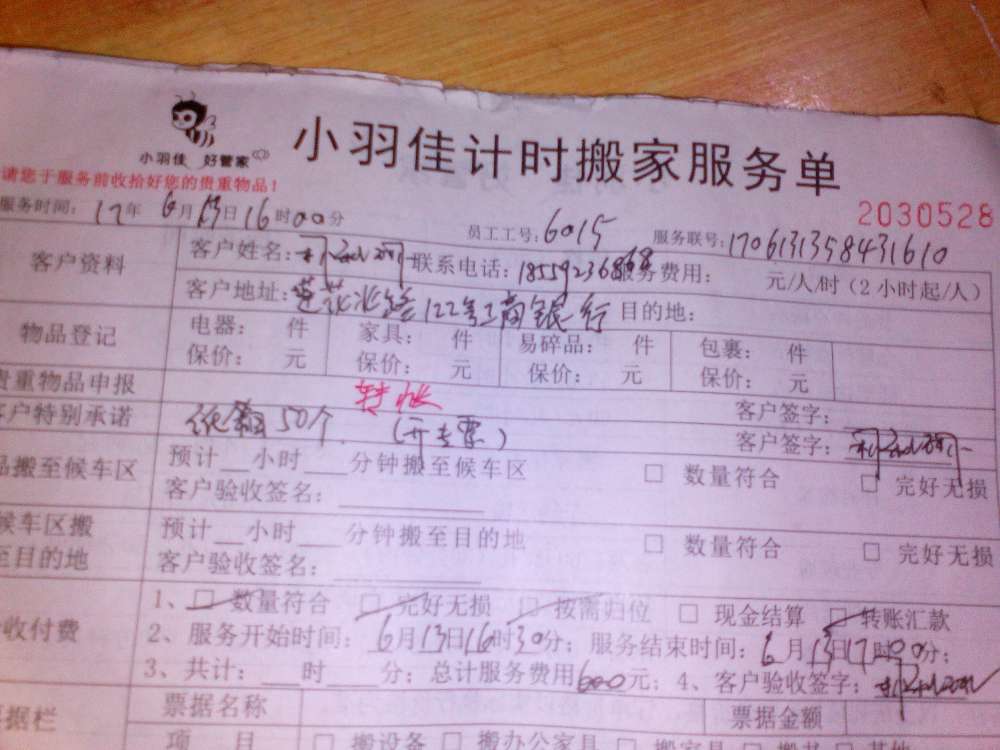 小羽佳 好管家
小羽佳计时搬家服务单
请您于服务前收拾好您的贵重物品！
2030528
服务时间：17年6月13日16时00分 员工工号：6015 服务联号：1706131358431610
客户资料
客户姓名： 联系电话：18559236868 服务费用： 元/人/时（2小时起/人）
客户地址：莲花北路122号工商银行 目的地：
物品登记
电器： 件 家具： 件 易碎品： 件 包裹： 件
保价： 元 保价： 元 保价： 元 保价： 元
贵重物品申报 转账 客户签字：
客户特别承诺 纸箱50个（开专票） 客户签字：
品搬至候车区
预计__小时___分钟搬至候车区 □ 数量符合 □ 完好无损
客户验收签名：
候车区搬至目的地
预计__小时___分钟搬至目的地 □ 数量符合 □ 完好无损
客户验收签名：
收付费
1、□ 数量符合 □ 完好无损 □ 按需归位 □ 现金结算 □ 转账汇款
2、服务开始时间：6月13日16时30分；服务结束时间：6月13日17时00分；
3、共计：___时___分；总计服务费用600元；4、客户验收签字：
票据栏
票据名称 票据金额
项 目 □ 搬设备 □ 搬办公家具 □ 搬家具